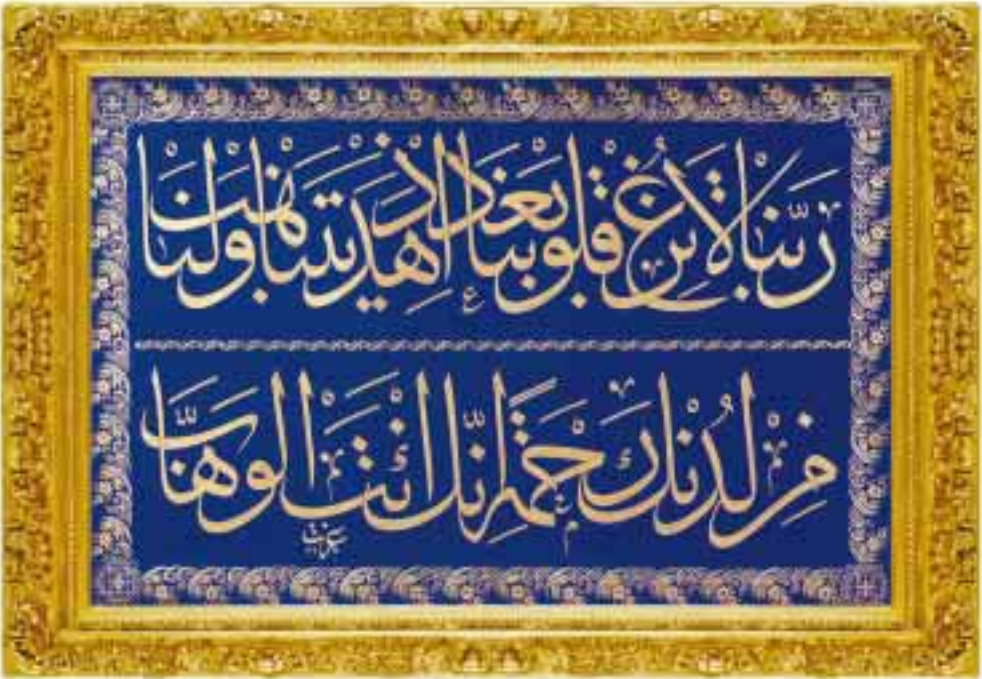 رَبَّنَا لَا تُزِغْ قُلُوبَنَا بَعْدَ اِذْ هَدَيْتَنَا وَهَبْ لَنَا
مِنْ لَدُنْكَ رَحْمَةً اِنَّكَ اَنْتَ الْوَهَّابُ
عزت